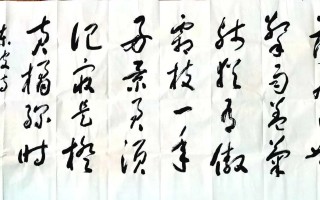 擎雨盖菊
残犹有傲
霜枝一年
好景君须
记最是橙
黄橘绿时
东坡诗